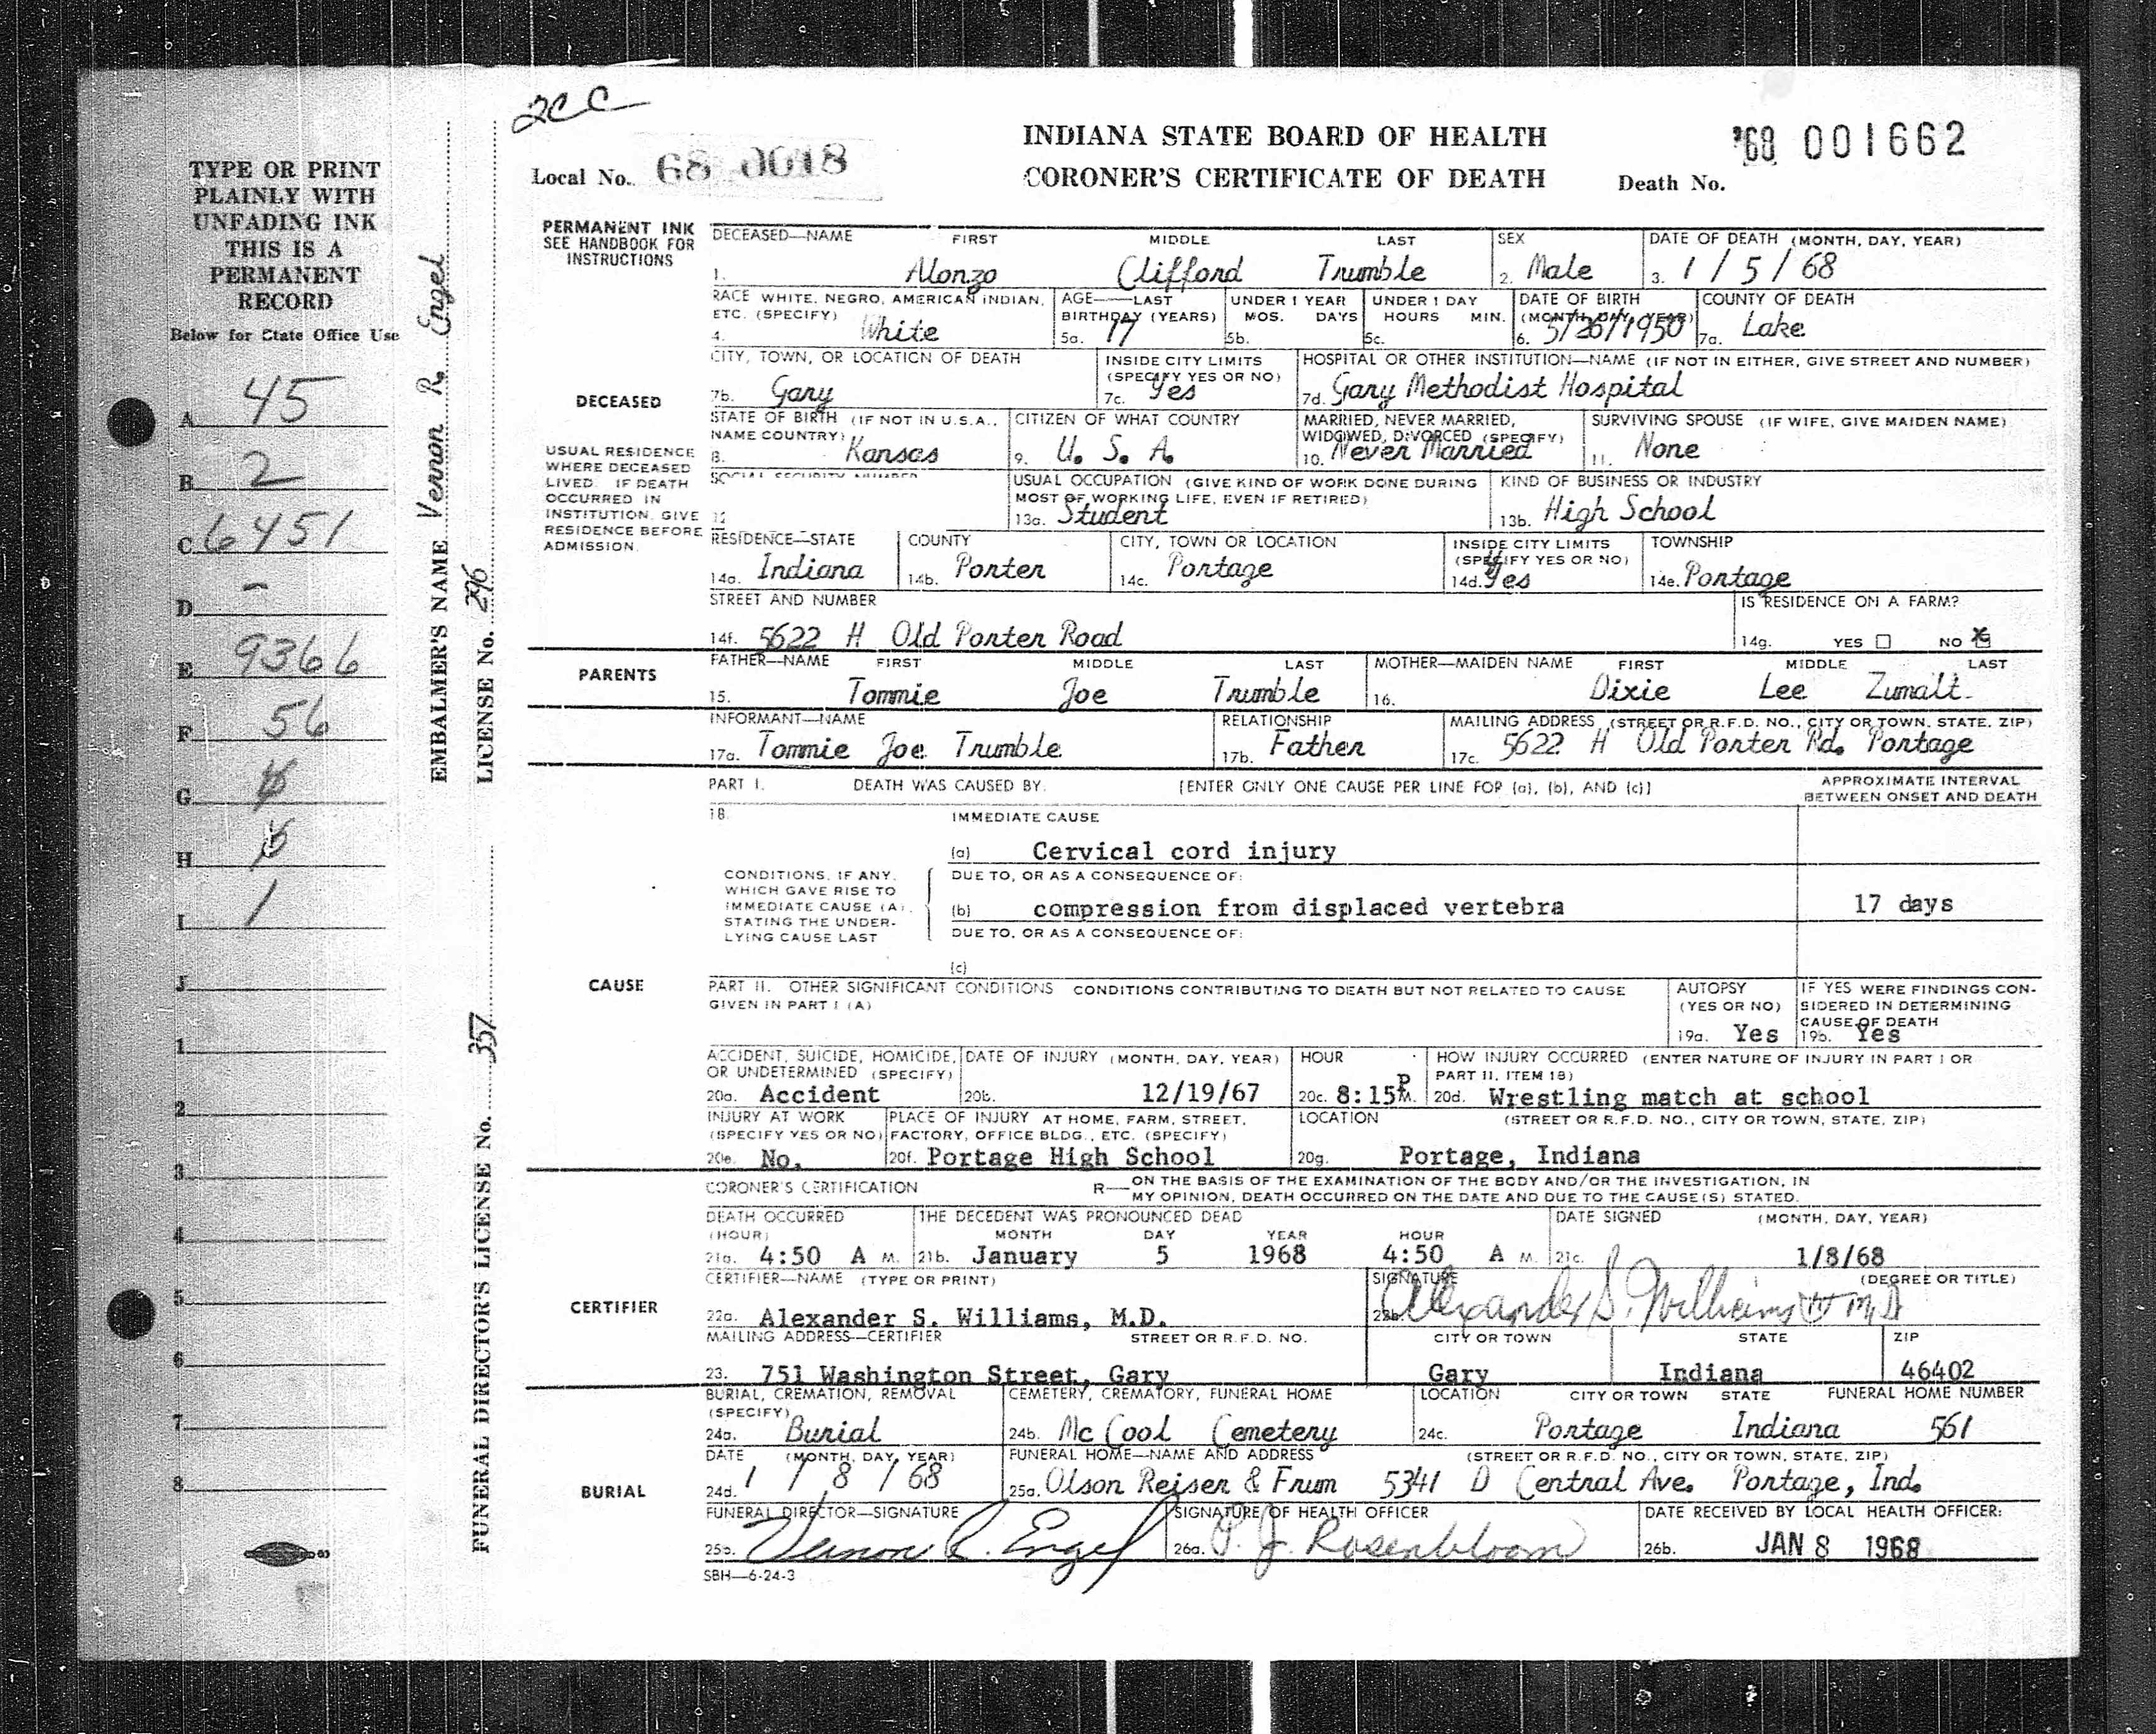 2CC
INDIANA STATE BOARD OF HEALTH
CORONER'S CERTIFICATE OF DEATH
Local No. 68 0018
Death No. '68 001662
TYPE OR PRINT
PLAINLY WITH
UNFADING INK
THIS IS A
PERMANENT
RECORD
Below for State Office Use
A 45
B 2
C 6451
D -
E 9366
F 56
G
H
I 1
J
1
2
3
4
5
6
7
8
EMBALMER'S NAME Vernon R. Engel
LICENSE No. 296
FUNERAL DIRECTOR'S LICENSE No. 357
PERMANENT INK
SEE HANDBOOK FOR
INSTRUCTIONS
DECEASED
USUAL RESIDENCE
WHERE DECEASED
LIVED. IF DEATH
OCCURRED IN
INSTITUTION, GIVE
RESIDENCE BEFORE
ADMISSION.
DECEASED—NAME FIRST MIDDLE LAST
1. Alonzo Clifford Trumble
SEX
2. Male
DATE OF DEATH (MONTH, DAY, YEAR)
3. 1 / 5 / 68
RACE WHITE, NEGRO, AMERICAN INDIAN,
ETC. (SPECIFY)
4. White
AGE—LAST
BIRTHDAY (YEARS)
5a. 17
UNDER 1 YEAR
MOS. DAYS
5b.
UNDER 1 DAY
HOURS MIN.
5c.
DATE OF BIRTH
(MONTH, DAY, YEAR)
6. 5/26/1950
COUNTY OF DEATH
7a. Lake
CITY, TOWN, OR LOCATION OF DEATH
7b. Gary
INSIDE CITY LIMITS
(SPECIFY YES OR NO)
7c. Yes
HOSPITAL OR OTHER INSTITUTION—NAME (IF NOT IN EITHER, GIVE STREET AND NUMBER)
7d. Gary Methodist Hospital
STATE OF BIRTH (IF NOT IN U.S.A.,
NAME COUNTRY)
8. Kansas
CITIZEN OF WHAT COUNTRY
9. U. S. A.
MARRIED, NEVER MARRIED,
WIDOWED, DIVORCED (SPECIFY)
10. Never Married
SURVIVING SPOUSE (IF WIFE, GIVE MAIDEN NAME)
11. None
SOCIAL SECURITY NUMBER
12
USUAL OCCUPATION (GIVE KIND OF WORK DONE DURING
MOST OF WORKING LIFE, EVEN IF RETIRED)
13a. Student
KIND OF BUSINESS OR INDUSTRY
13b. High School
RESIDENCE—STATE
14a. Indiana
COUNTY
14b. Porter
CITY, TOWN OR LOCATION
14c. Portage
INSIDE CITY LIMITS
(SPECIFY YES OR NO)
14d. Yes
TOWNSHIP
14e. Portage
STREET AND NUMBER
14f. 5622 H Old Porter Road
IS RESIDENCE ON A FARM?
14g. YES NO X
PARENTS
FATHER—NAME FIRST MIDDLE LAST
15. Tommie Joe Trumble
MOTHER—MAIDEN NAME FIRST MIDDLE LAST
16. Dixie Lee Zumalt
INFORMANT—NAME
17a. Tommie Joe Trumble
RELATIONSHIP
17b. Father
MAILING ADDRESS (STREET OR R.F.D. NO., CITY OR TOWN, STATE, ZIP)
17c. 5622 H Old Porter Rd. Portage
CAUSE
PART I. DEATH WAS CAUSED BY: [ENTER ONLY ONE CAUSE PER LINE FOR (a), (b), AND (c)]
APPROXIMATE INTERVAL
BETWEEN ONSET AND DEATH
18.
IMMEDIATE CAUSE
(a) Cervical cord injury
CONDITIONS, IF ANY,
WHICH GAVE RISE TO
IMMEDIATE CAUSE (A),
STATING THE UNDER-
LYING CAUSE LAST
DUE TO, OR AS A CONSEQUENCE OF:
(b) compression from displaced vertebra 17 days
DUE TO, OR AS A CONSEQUENCE OF:
(c)
PART II. OTHER SIGNIFICANT CONDITIONS CONDITIONS CONTRIBUTING TO DEATH BUT NOT RELATED TO CAUSE
GIVEN IN PART I (A)
AUTOPSY
(YES OR NO)
19a. Yes
IF YES WERE FINDINGS CON-
SIDERED IN DETERMINING
CAUSE OF DEATH
19b. Yes
ACCIDENT, SUICIDE, HOMICIDE,
OR UNDETERMINED (SPECIFY)
20a. Accident
DATE OF INJURY (MONTH, DAY, YEAR)
20b. 12/19/67
HOUR
20c. 8:15 P M.
HOW INJURY OCCURRED (ENTER NATURE OF INJURY IN PART I OR
PART II, ITEM 18)
20d. Wrestling match at school
INJURY AT WORK
(SPECIFY YES OR NO)
20e. No.
PLACE OF INJURY AT HOME, FARM, STREET,
FACTORY, OFFICE BLDG., ETC. (SPECIFY)
20f. Portage High School
LOCATION (STREET OR R.F.D. NO., CITY OR TOWN, STATE, ZIP)
20g. Portage, Indiana
CERTIFIER
CORONER'S CERTIFICATION
R— ON THE BASIS OF THE EXAMINATION OF THE BODY AND/OR THE INVESTIGATION, IN
MY OPINION, DEATH OCCURRED ON THE DATE AND DUE TO THE CAUSE(S) STATED.
DEATH OCCURRED
(HOUR)
21a. 4:50 A M.
THE DECEDENT WAS PRONOUNCED DEAD
MONTH DAY YEAR HOUR
21b. January 5 1968 4:50 A M.
DATE SIGNED (MONTH, DAY, YEAR)
21c. 1/8/68
CERTIFIER—NAME (TYPE OR PRINT)
22a. Alexander S. Williams, M.D.
SIGNATURE (DEGREE OR TITLE)
22b. Alexander S. Williams M.D
MAILING ADDRESS—CERTIFIER STREET OR R.F.D. NO. CITY OR TOWN STATE ZIP
23. 751 Washington Street, Gary Gary Indiana 46402
BURIAL
BURIAL, CREMATION, REMOVAL
(SPECIFY)
24a. Burial
CEMETERY, CREMATORY, FUNERAL HOME
24b. Mc Cool Cemetery
LOCATION CITY OR TOWN STATE FUNERAL HOME NUMBER
24c. Portage Indiana 561
DATE (MONTH, DAY, YEAR)
24d. 1 / 8 / 68
FUNERAL HOME—NAME AND ADDRESS (STREET OR R.F.D. NO., CITY OR TOWN, STATE, ZIP)
25a. Olson Reiser & Frum 5341 D Central Ave. Portage, Ind.
FUNERAL DIRECTOR—SIGNATURE
25b. Vernon R. Engel
SIGNATURE OF HEALTH OFFICER
26a. P. J. Rosenbloom
DATE RECEIVED BY LOCAL HEALTH OFFICER:
26b. JAN 8 1968
SBH—6-24-3